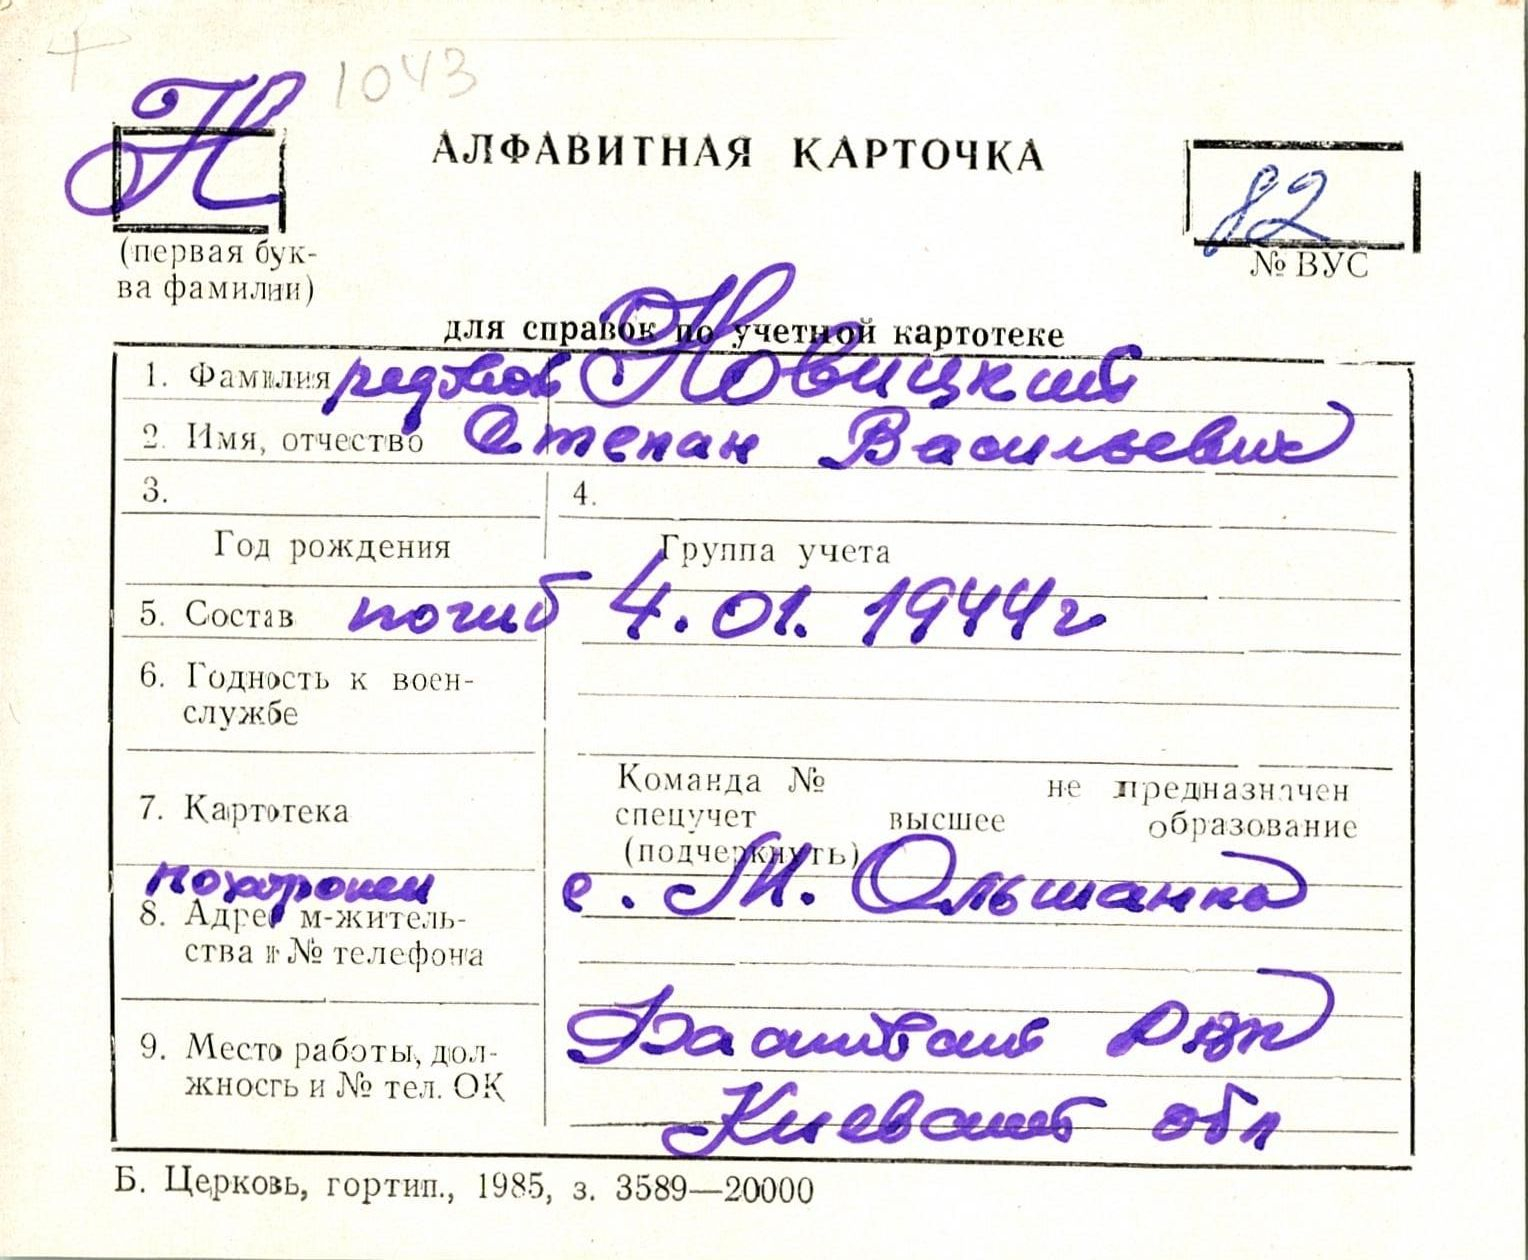 1043
Н
АЛФАВИТНАЯ КАРТОЧКА
82
(первая бук-
ва фамилии)
№ ВУС
для справок по учетной картотеке
1. Фамилия рядовой Новицкий
2. Имя, отчество Степан Васильевич
3.
4.
Год рождения
Группа учета
5. Состав погиб 4.01.1944г
6. Годность к воен-
службе
7. Картотека
Команда № не предназначен
спецучет высшее образование
(подчеркнуть)
похоронен с. М. Ольшанка
8. Адрес м-житель-
ства и № телефона
9. Место работы, дол-
жность и № тел. ОК
Киевской обл
Б. Церковь, гортип., 1985, з. 3589—20000